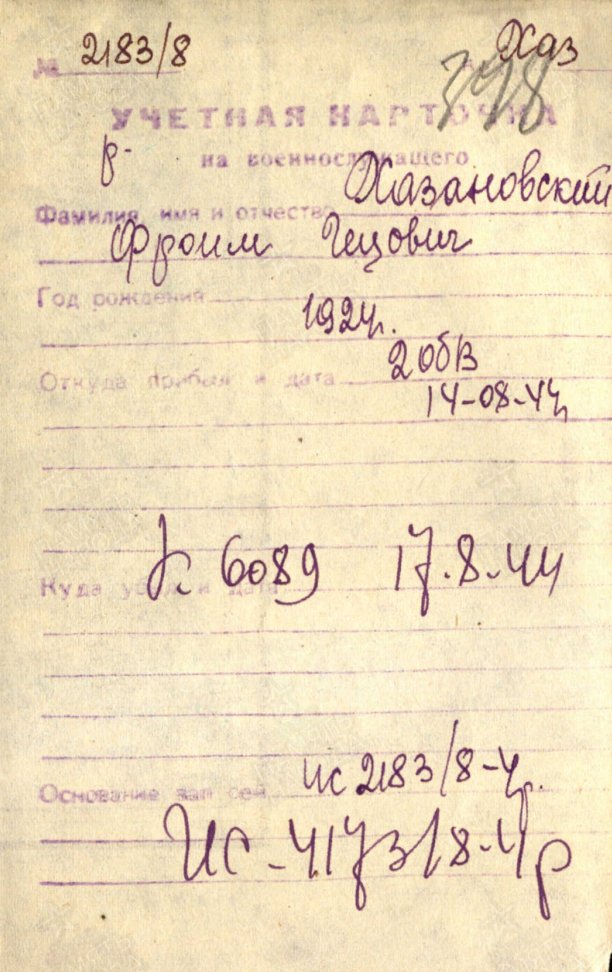 № 2183/8 Хаз
УЧЕТНАЯ КАРТОЧКА
р-
на военнослужащего
Фамилия, имя и отчество Хазановский
Фроим Гецович
Год рождения
1924г.
2 обв
Откуда прибыл и дата
14-08-44
6089 17.8.44
Куда убыл и дата
ис 2183/8-4р.
Основание записей